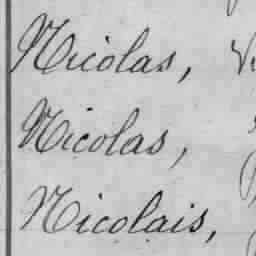 Nicolas,
Nicolas,
Nicolais,